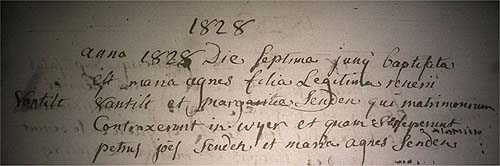 1828
anno 1828 Die septima junij baptisata
est maria agnes filia Legitima reneri
Vantilt Vantilt et margaritta Senden qui matrimonium
Contraxerunt in wyer et quam Susceperunt
petrus joes Senden et maria agnes Senden